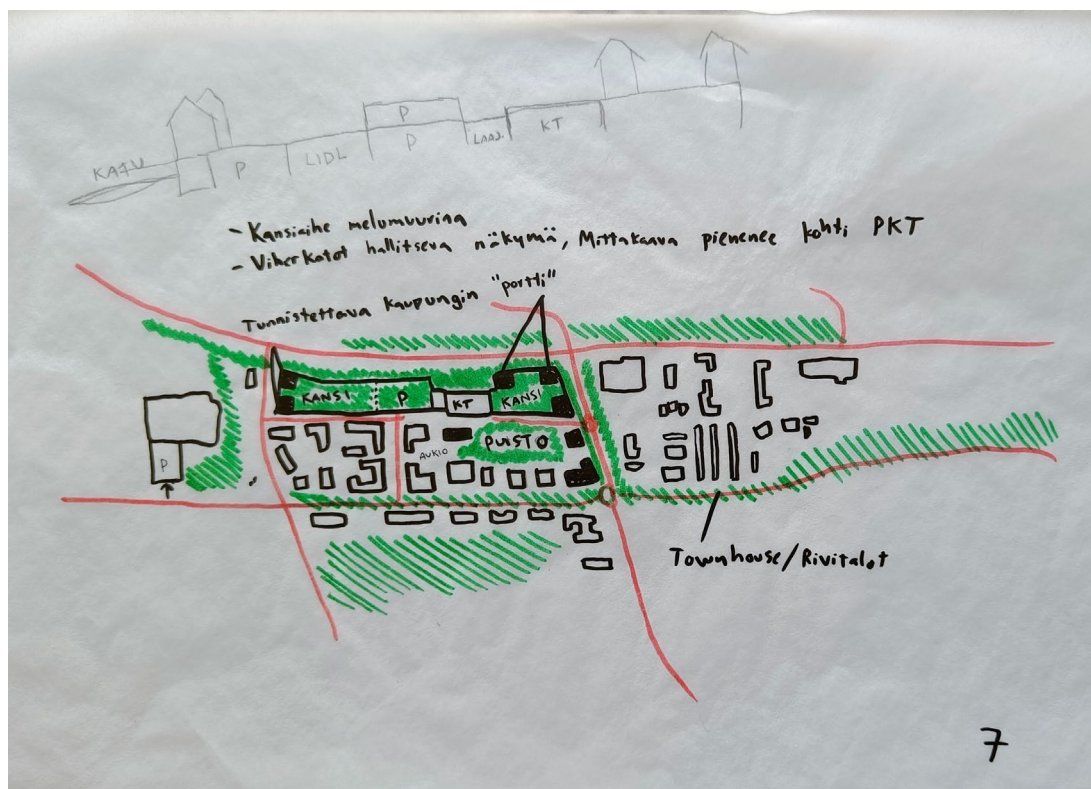 P
KATU P LIDL P LAAJ. KT
- Kansiaihe melumuurina
- Viherkatot hallitseva näkymä, Mittakaava pienenee kohti PKT
Tunnistettava kaupungin "portti"
KANSI P KT KANSI
AUKIO PUISTO
P
Townhouse/Rivitalot
7